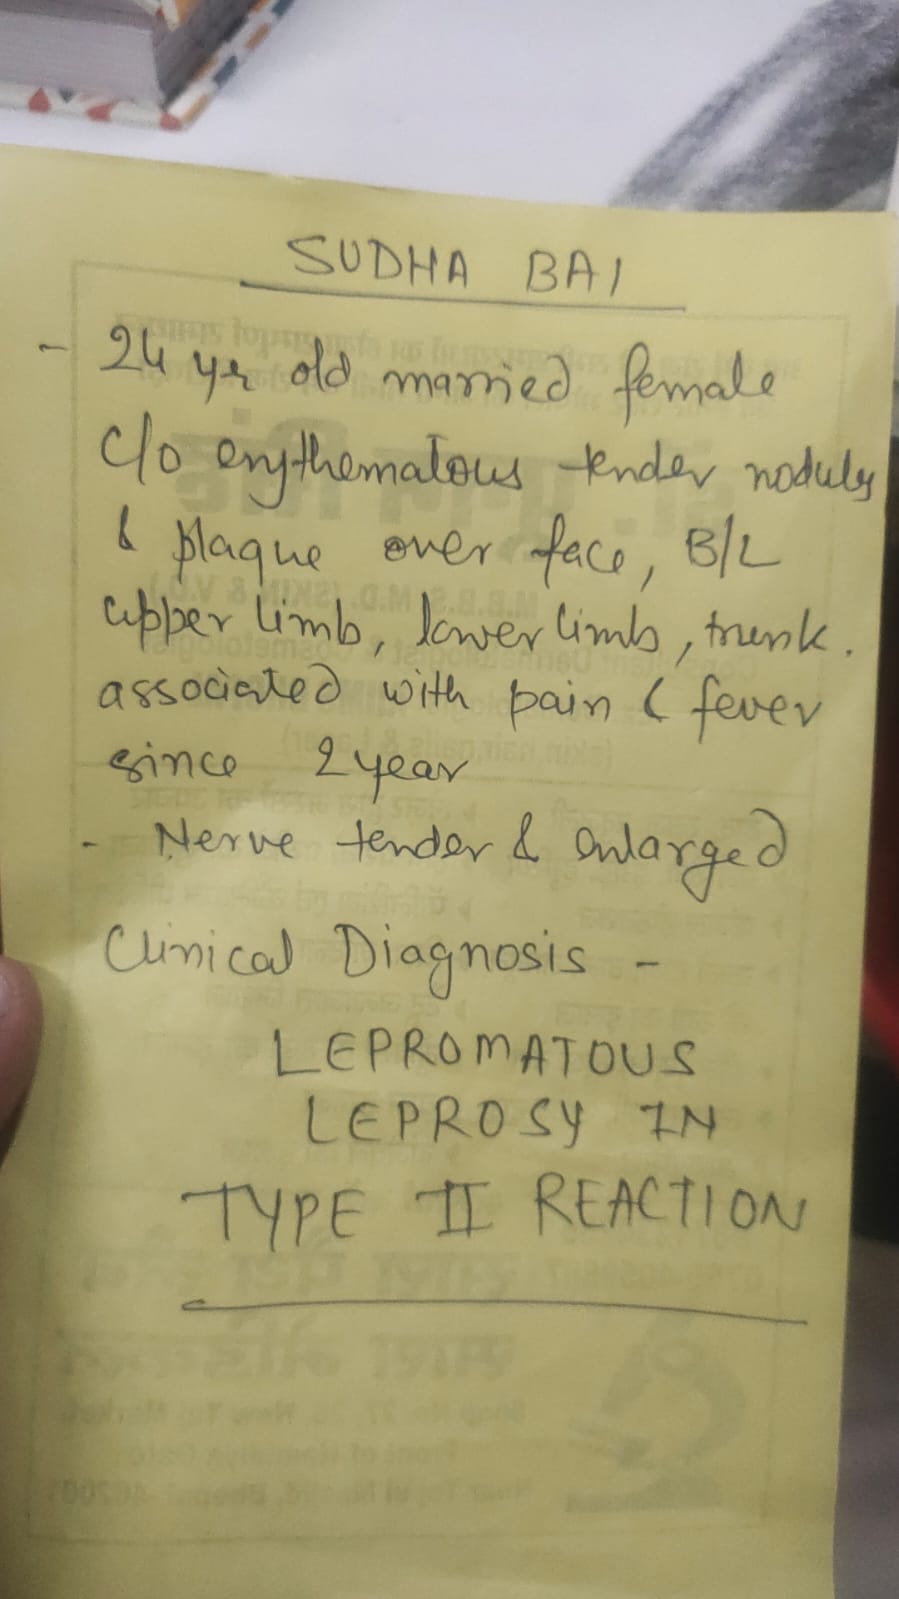 SUDHA BAI
- 24 yr old married female
C/o erythematous tender nodules
& plaque over face, B/L
upper limb, lower limb, trunk.
associated with pain & fever
since 2 year
- Nerve tender & enlarged
Clinical Diagnosis -
LEPROMATOUS
LEPROSY IN
TYPE II REACTION